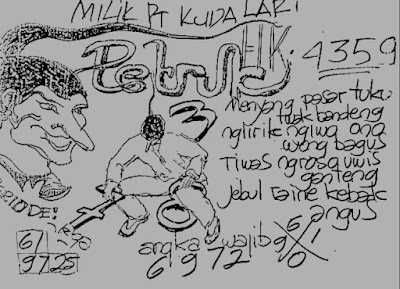 MILIK PT KUDA LARI
4359
Menyang pasar tuku
iwak bandeng
nglirik ngiwa ana
wong bagus
Tiwas ngrosa uwis
ganteng
Jebul raine kebak
angus
3
61
97 28
angka wajib
6 9 7 2